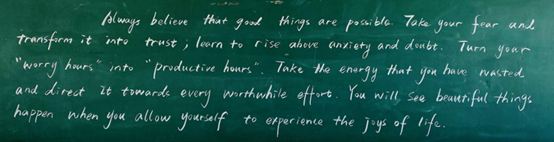 Always believe that good things are possible. Take your fear and
transform it into trust; learn to rise above anxiety and doubt. Turn your
"worry hours" into "productive hours". Take the energy that you have wasted
and direct it towards every worthwhile effort. You will see beautiful things
happen when you allow yourself to experience the joys of life.